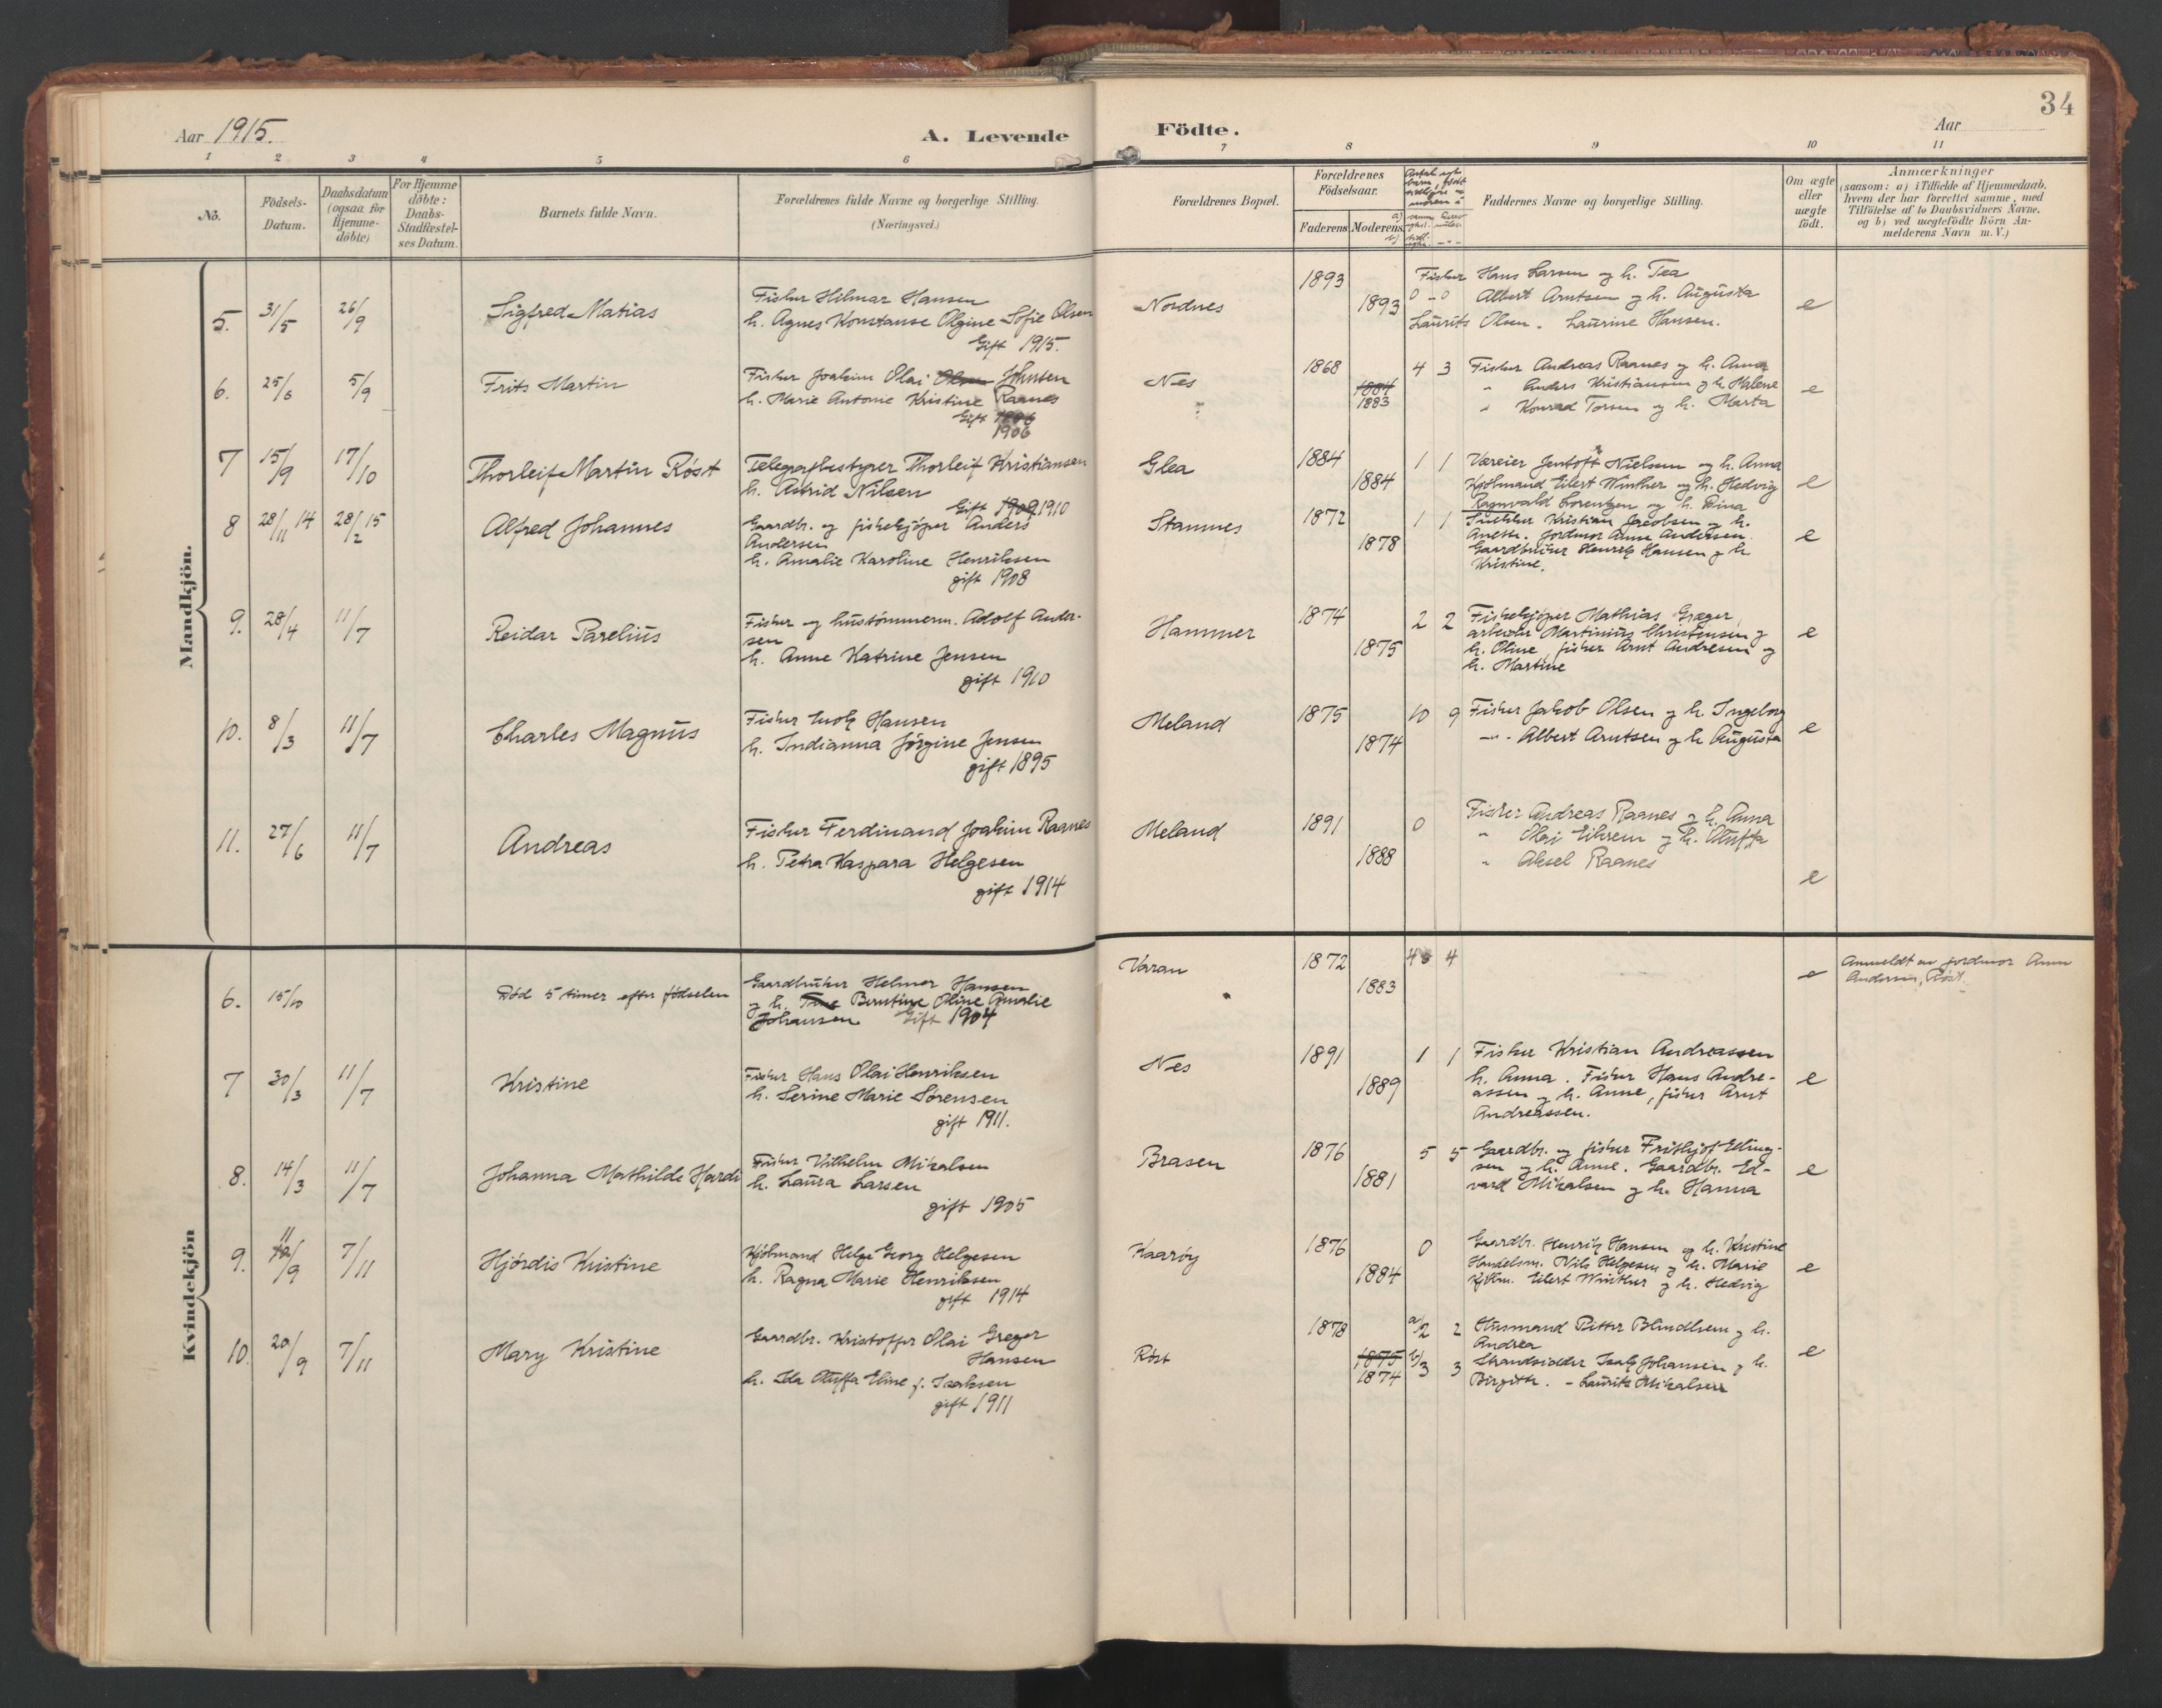 Aar 1915.
A. Levende Födte.
Aar
34
1 2 3 4 5 6 7 8 9 10 11
No.
Födsels-Datum.
Daabsdatum (ogsaa for Hjemme-döbte)
For Hjemme döbte: Daabs-Stadfæstel-ses Datum.
Barnets fulde Navn.
Forældrenes fulde Navne og borgerlige Stilling.
(Næringsvei.)
Forældrenes Bopæl.
Forældrenes Födselsaar.
Faderens Moderens
Faddernes Navne og borgerlige Stilling.
Om ægte eller uægte födt.
Anmærkninger
(saasom: a) i Tilfælde af Hjemmedaab,
hvem der har forrettet samme, med
Tilföielse af to Daabsvidners Navne.
og b) ved uægtefödte Börn An-
melderens Navn m.V.)
Mandkjön.
5. 31/5 26/9 Sigfred Matias
Fisker Hilmar Hansen
h. Agnes Konstanse Olgine Sofie Olsen
Gift 1915.
Nordnes 1893 1893 0 - 0
Fisker Hans Larsen og h. Tea
Albert Arntsen og h. Augusta
Laurits Olsen. Laurine Hansen.
e
6. 25/6 5/9 Frits Martin
Fisker Joakim Olai Olsen Johnsen
h. Marie Antonie Kristine Raanes
Gift 1906
1906
Nes 1868 1884 1883 4 3
Fisker Andreas Raanes og h. Anna
" Anders Kristiansen og h. Halene
" Konrad Torsen og h. Marta
e
7 15/9 17/10 Thorleif Martin Röst
Telegrafbestyrer Thorleif Kristiansen
h. Astrid Nilsen
Gift 1909 1910
Glea 1884 1884 1 1
Væreier Jentoft Nielsen og h. Anna
Kjøbmand Eilert Winther og h. Hedvig
Ragnvald Lorentzen og h. Dina
e
8 28/11 14 28/2 15 Alfred Johannes
Gaardbr. og fiskekjøper Anders
Andersen
h. Amalie Karoline Henriksen
gift 1908
Stamnes 1872 1878 1 1
Kristian Jacobsen og h.
Anette. Jordmor Anna Andersen.
Gaardbruker Henrik Hansen og h
Kristine.
e
9. 28/4 11/7 Reidar Parelius
Fisker og hustömmerm. Adolf Ander-
sen
h. Anne Katrine Jensen
gift 1910
Hammer 1874 1875 2 2
Fiskekjøper Mathias Græger,
arbeider Martinius Christensen og
h. Oline, fisker Arnt Andresen og
h. Martine
e
10. 8/3 11/7 Charles Magnus
Fisker Hansen
h. Indianna Jörgine Jensen
gift 1895
Meland 1875 1874 10 9
Fisker Jakob Olsen og h. Ingeborg
-"- Albert Arntsen og h Augusta
e
11. 27/6 11/7 Andreas
Fisker Ferdinand Joakim Raanes
h. Petra Kaspara Helgesen
gift 1914
Meland 1891 1888 0
Fisker Andreas Raanes og h. Anna
" Olai Eikrem og h. Oluffa
" Aksel Raanes
e
Kvindekjön
6. 15/10 Död 5 timer efter födselen
Gaardbruker Helmer Hansen
og h. Berntine Oline Amalie
Johansen Gift 1904
Varan 1872 1883 4 4
e
Anmeldt av jordmor Anna
Andersen, Röst.
7 30/3 11/7 Kristine
Fisker Hans Olai Henriksen
h. Serine Marie Sörensen
gift 1911.
Nes 1891 1889 1 1
Fisker Kristian Andreassen
h. Anna. Fisker Hans Andre-
assen og h. Anne, fisker Arnt
Andreassen.
e
8. 14/3 11/7 Johanna Mathilde Hardi
Fisker Vilhelm Mikalsen
h. Laura Larsen
gift 1905
Brasen 1876 1881 5 5
Gaardbr. og fisker Frithjof Elling-
sen og h. Anne. Gaardbr. Ed-
vard Mikalsen og h. Hanna
e
9. 11/9 7/11 Hjördis Kristine
Kjöbmand Helge Georg Helgesen
h. Ragna Marie Henriksen
gift 1914
Kaaröy 1876 1884 0
Gaardbr. Henrik Hansen og h. Kristine
Handelsm. Nils Helgesen og h. Marie
Kjöbm. Eilert Winther og h. Hedvig
e
10. 20/9 7/11 Mary Kristine
Gaardbr. Kristoffer Olai Greger
Hansen
h. Ida Oluffa Eline f. Isaksen
gift 1911
Röst 1878 1875 1874 a/2 2 b/3 3
Husmand Petter Blindheim og h.
Andrea
Strandsidder Isak Johansen og h.
Birgitte. - Laurits Mikalsen
e